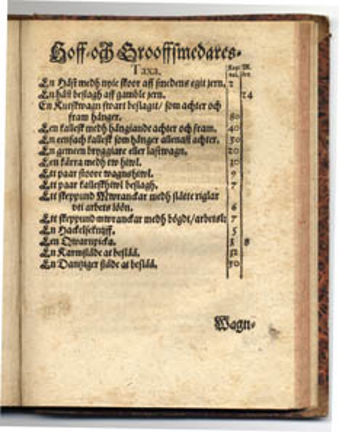 Hoff- och Grooffsmedares-
Taxa.
En Häst medh nyie skoor aff smedens egit jern. 2
En häst beslagh aff gamble jern. 24
En Kutskwagn swart beslagit/ som achter och
fram hänger. 80
Een kallesk medh hängiande achter och fram. 40
En eenfach kallesk som hänger allenast achter. 30
En gemeen bryggiare eller lastwagn. 20
Een kärra medh tw hiwl. 10
Ett paar stoore wagnshiwl. 9
Ett paar kalleskhiwl beslagh. 7
Ett skeppund Mwranckar medh slätte riglar
uti arbets löön. 6
Ett skeppund mwranckar medh bögdt/arbetsl: 7
En Hackelseknijff. 5
Een Qwarnpicka. 1 8
En Karmsläde at beslåå. 12
En Dantziger släde at beslåå. 10
Wagn-